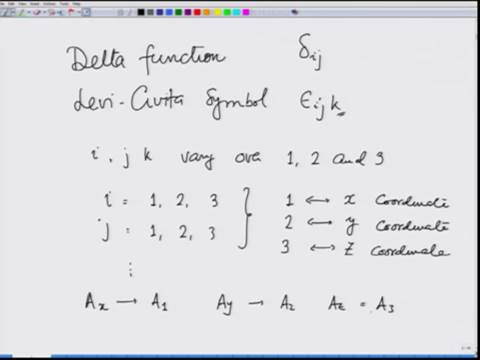 Delta function δij
Levi-Civita Symbol ϵijk
i, j k vary ove 1, 2 and 3
i = 1, 2, 3 } 1 ↔ x Coordinate
j = 1, 2, 3 2 ↔ y Coordinate
⋮ 3 ↔ z Coordinate
Ax → A1 Ay → A2 Az = A3